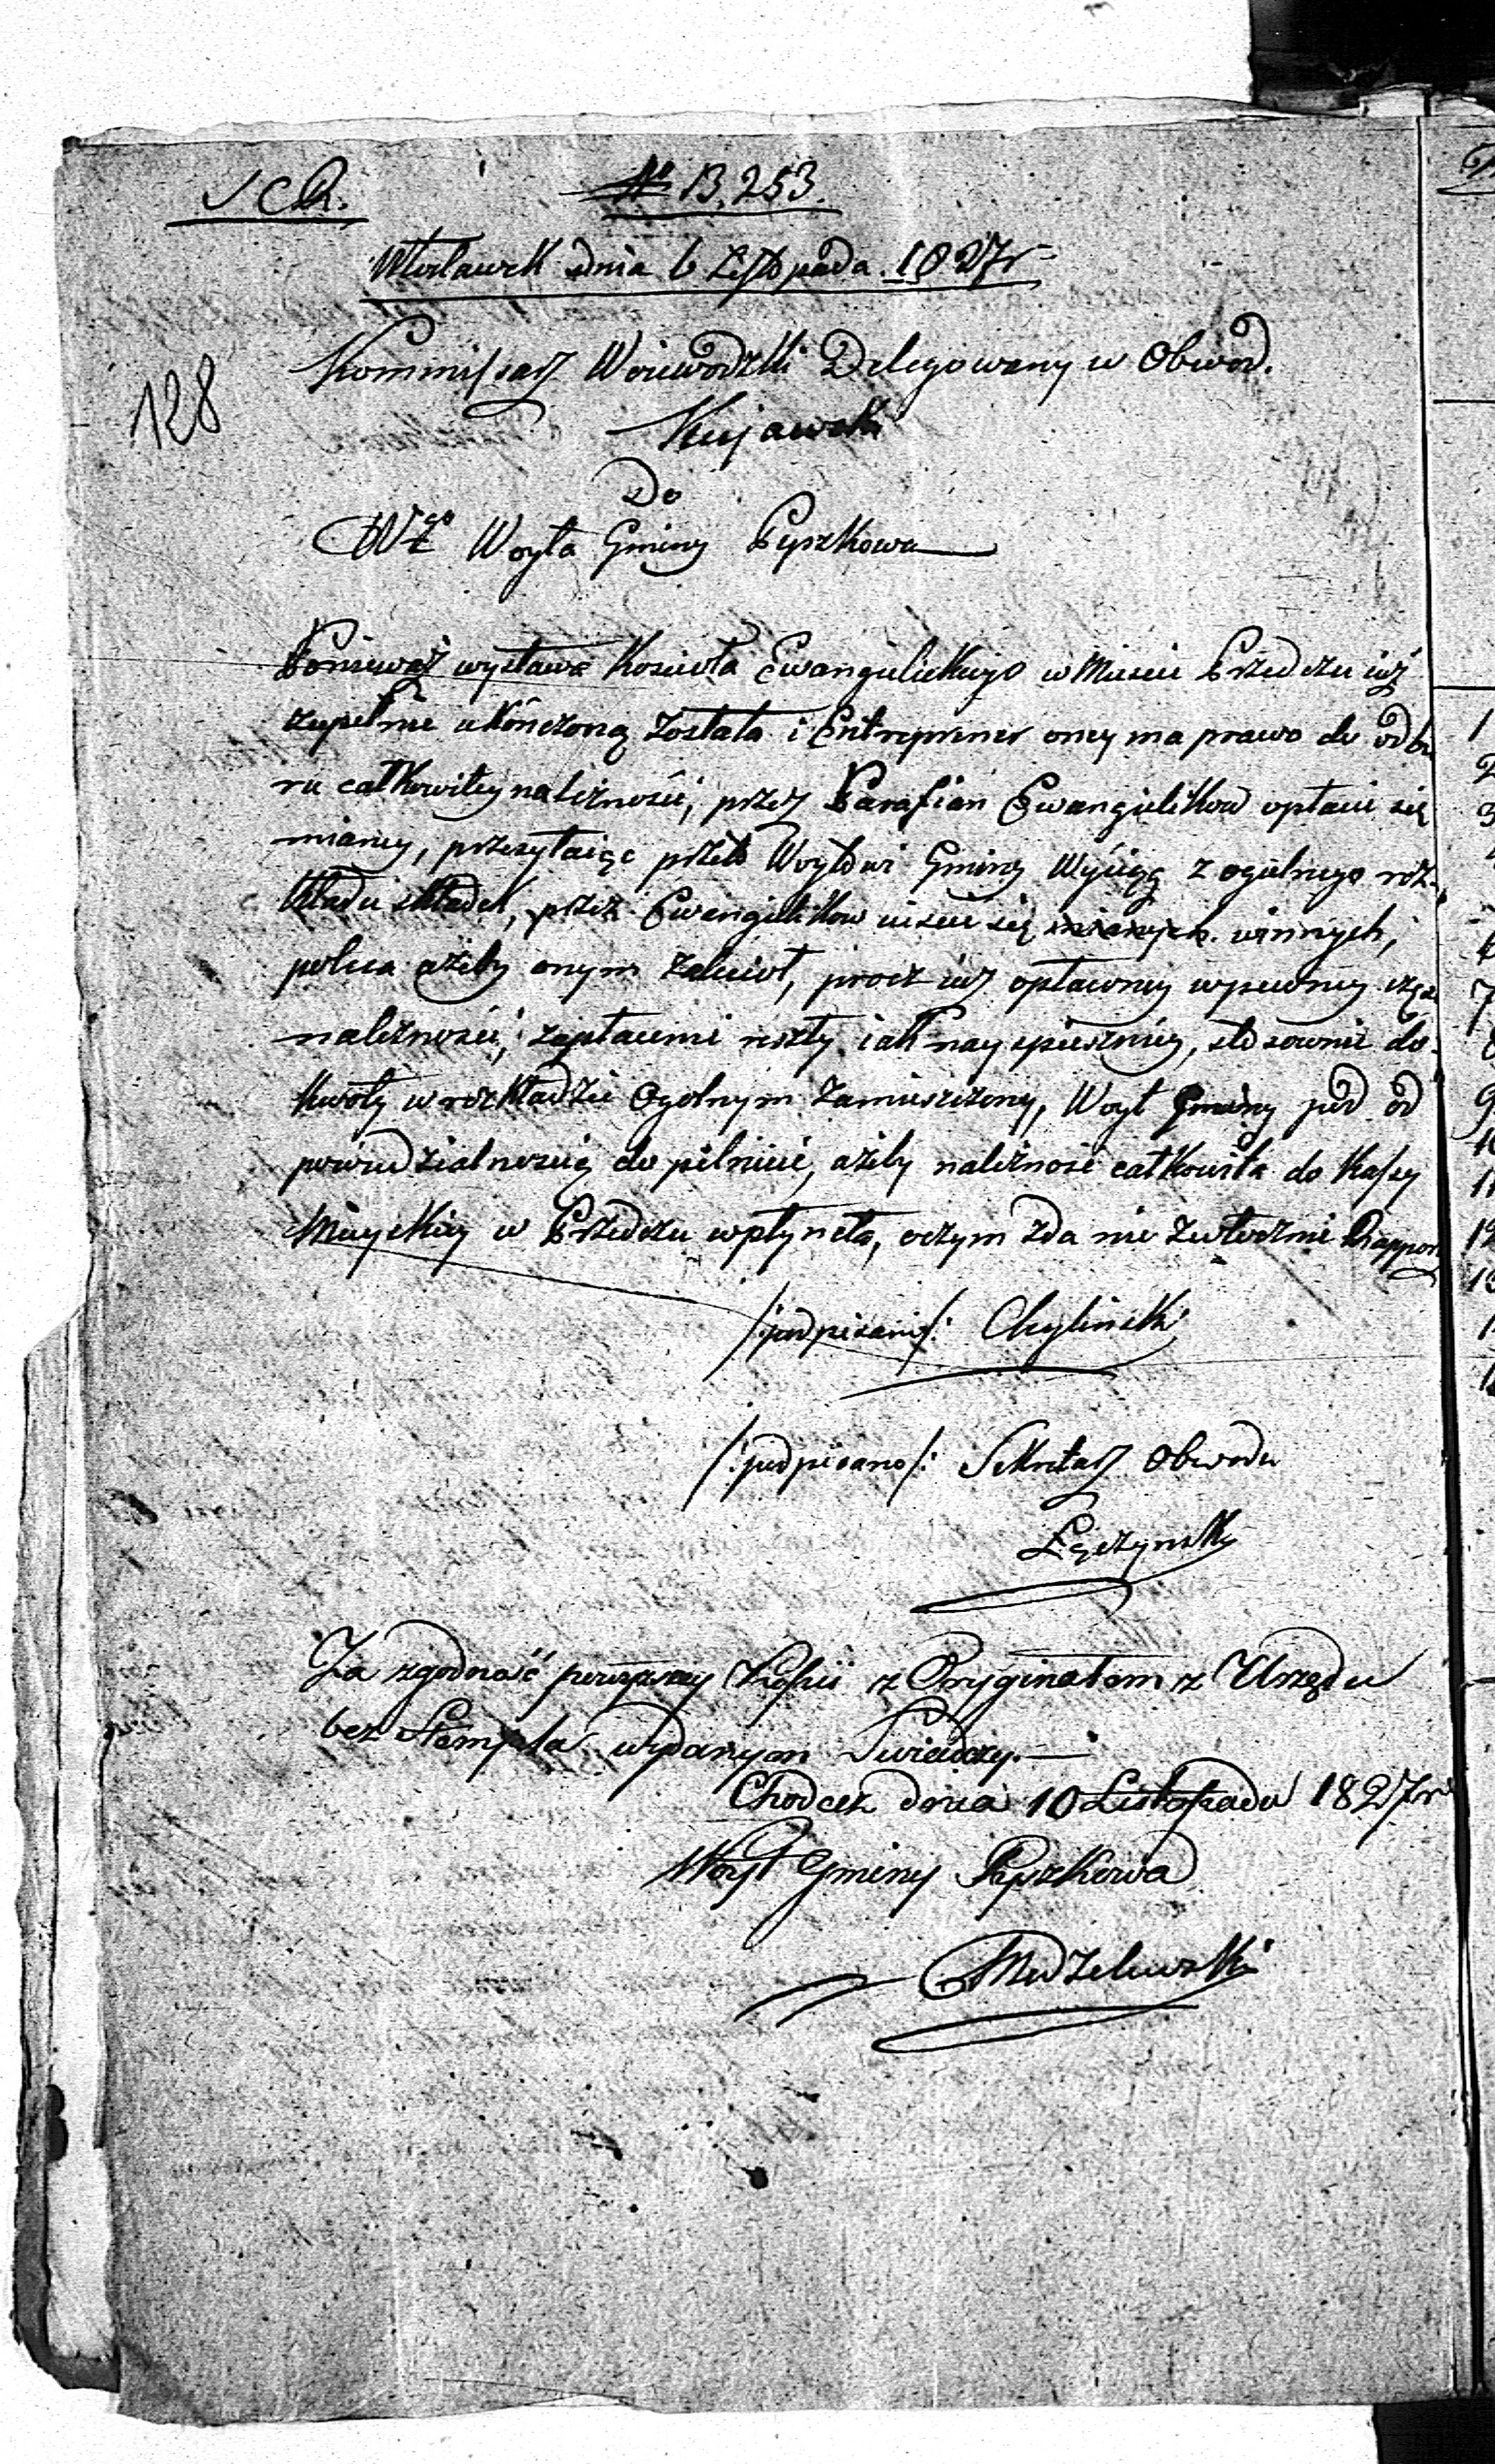 S C R.
№ 13,253.
Włocławek dnia 6 Listopada 1827 r
128
Kommissarz Woiewodzki Delegowany w Obwod.
Kujawski
Do
Wgo Woyta Gminy Pyszkowa
Ponieważ wystawa Kościoła Ewangielickiego w Mieście Przedczu iuż
zupełnie ukończoną została i Entreprener oney ma prawo do odbio
ru całkowitey należności, przez Parafian Ewangielikow opłacić się
mianey, przesyłaiąc przeto Woytowi Gminy Wyciąg z ogólnego roz-
kładu składek, przez Ewangielikow uiścić się winnych,
poleca ażeby onym zalecił, procz iuż opłaconey w pewney części
należności, zapłacenie reszty iak nayspieszniey, stosownie do
kwoty w rozkładzie Ogolnym zamieszczoney, Woyt Gminy pod od
powiedzialnością dopilnuie, ażeby należność całkowita do Kassy
Mieyskiey w Przedczu wpłyneła, o czym zda niezwłocznie Rapport
/:podpisano/: Chyliński
/:podpisano/: Sekretarz Obwodu
Łęczynski
Za zgodność powyższey Kopii z Oryginałem z Urzędu
bez Stempla wydanym Swiadczy.
Chodecz dnia 10 Listopada 1827 r
Woyt Gminy Pyszkowa
1
2
3
7
9
11
12